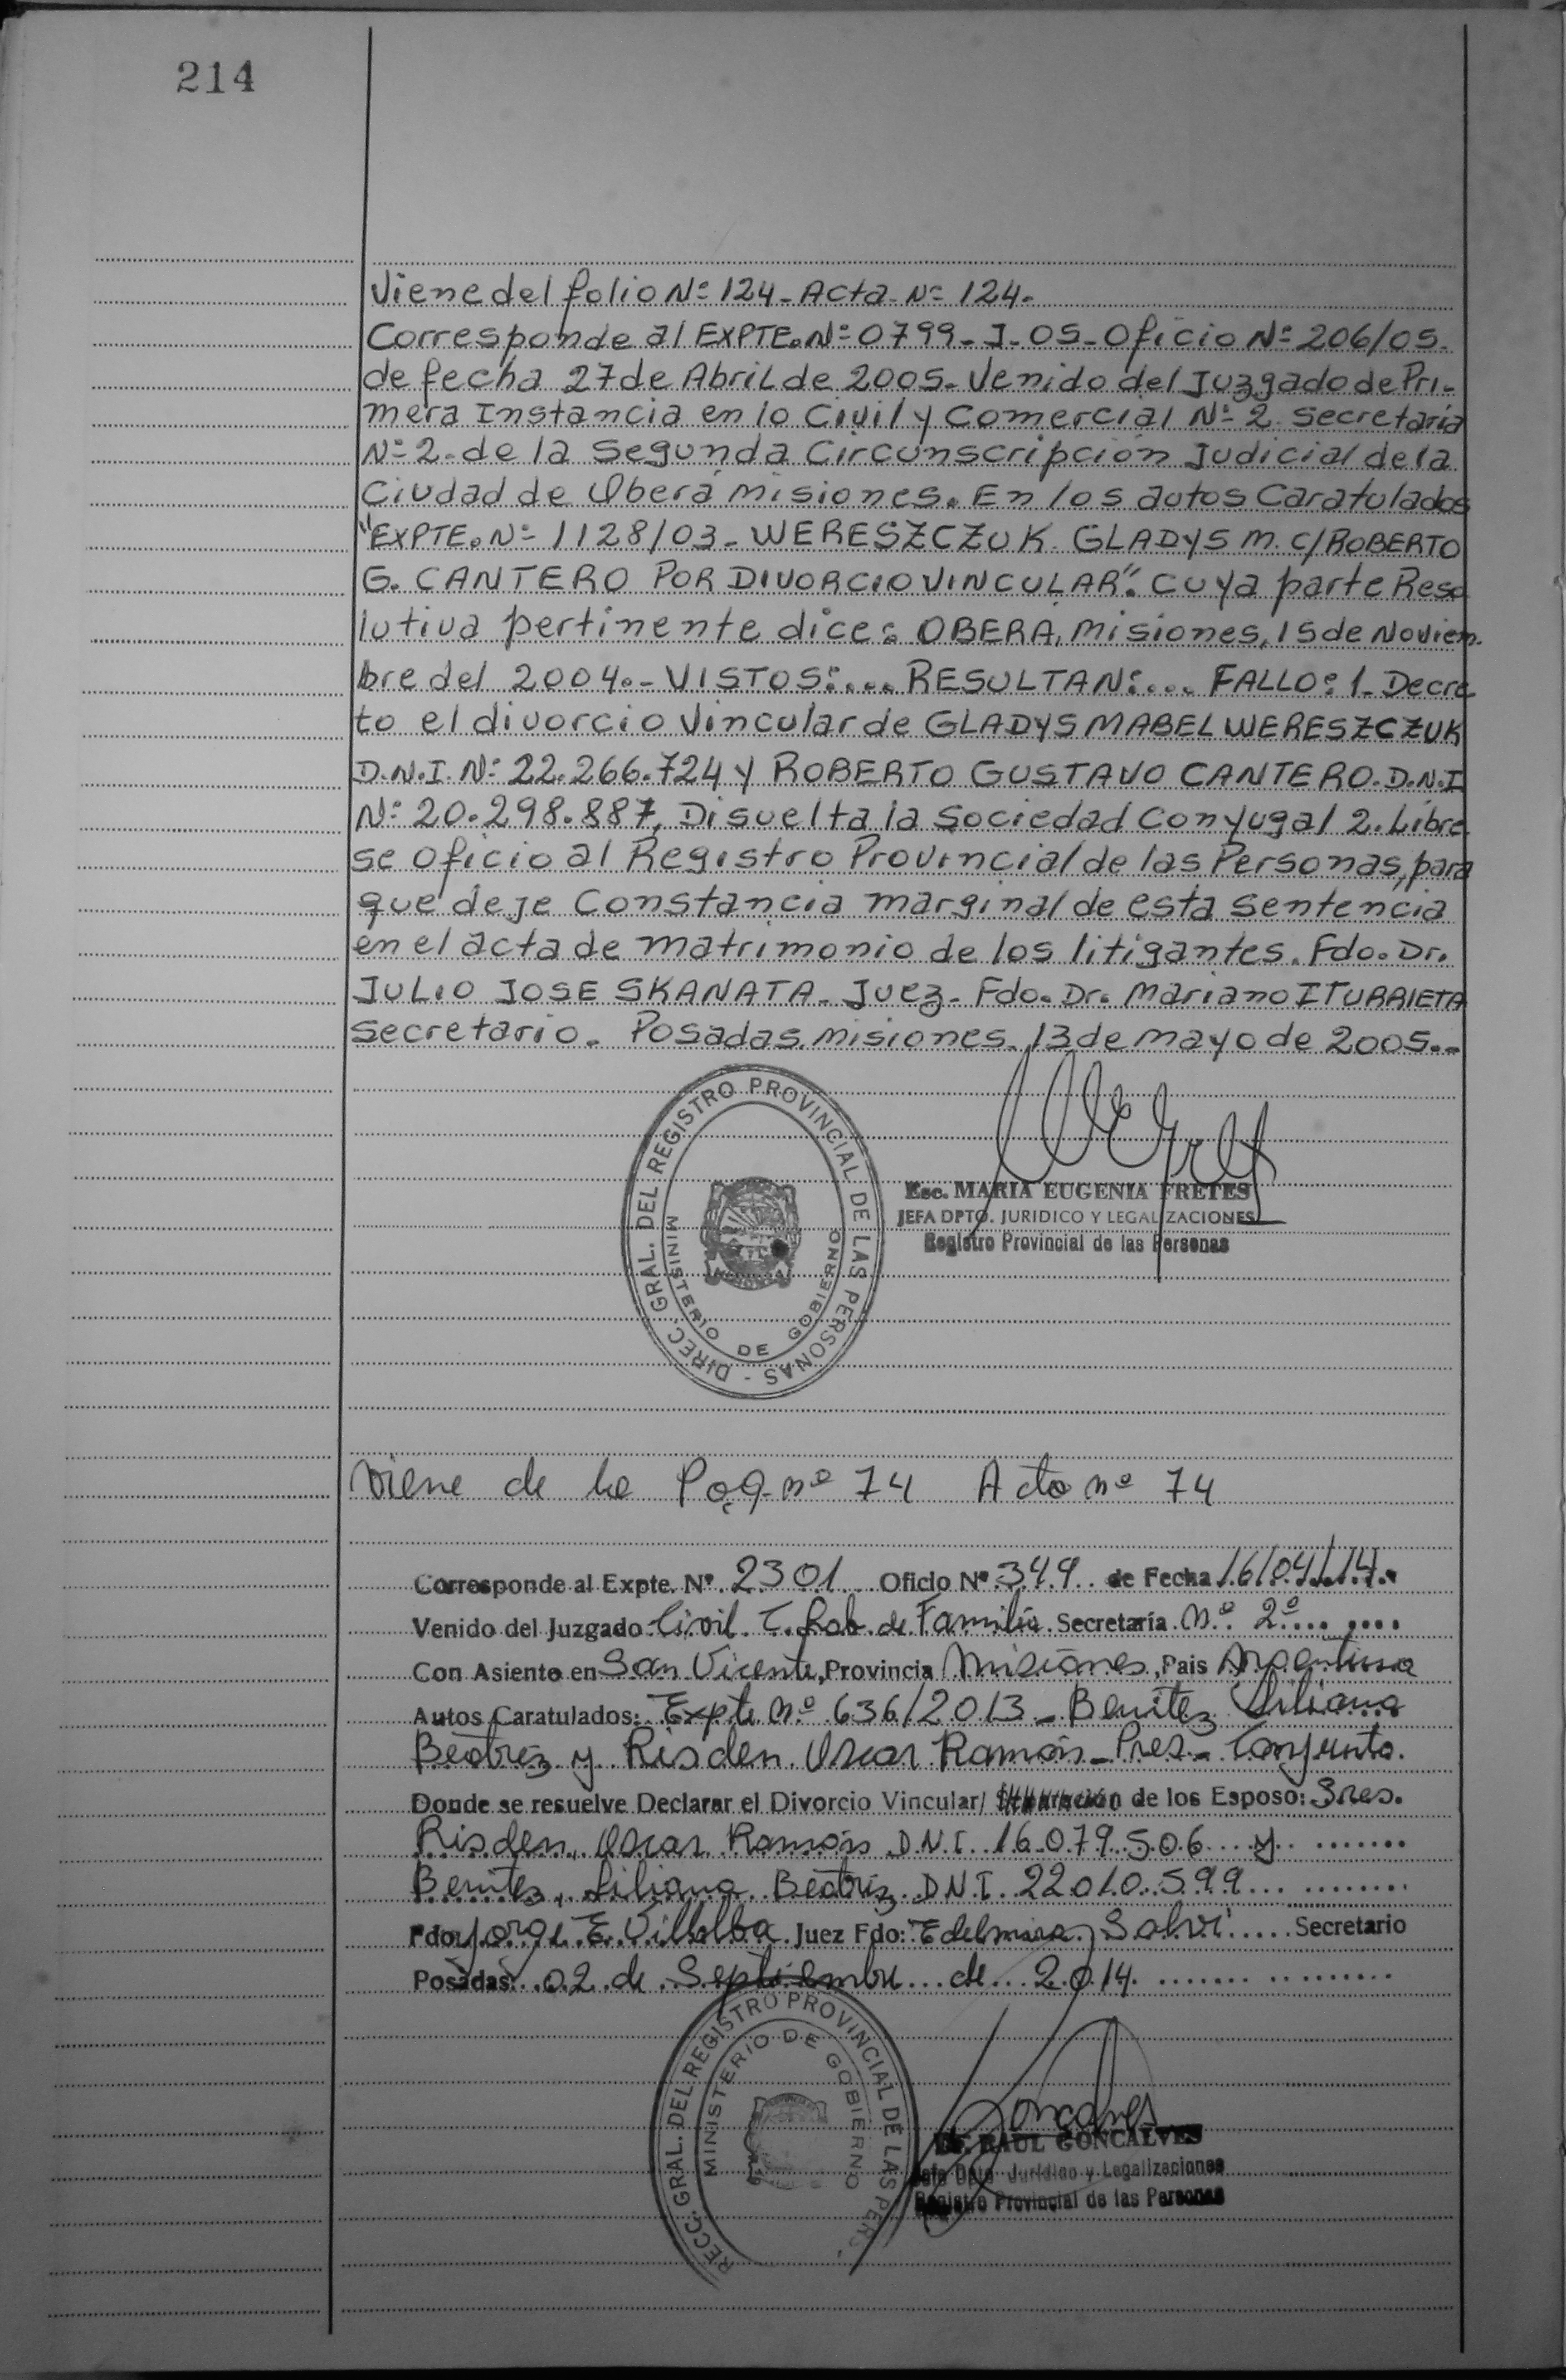 214
Viene del folio Nº 124 - Acta Nº 124.
Corresponde al EXPTE. Nº 0799 - J - 05 - Oficio Nº 206/05.
de fecha 27 de Abril de 2005. Venido del Juzgado de Pri-
mera Instancia en lo Civil y Comercial Nº 2. Secretaría
Nº 2. de la Segunda Circunscripción Judicial de la
Ciudad de Oberá Misiones. En los autos Caratulados
"EXPTE. Nº 1128/03 - WERESZCZUK GLADYS M. C/ROBERTO
G. CANTERO POR DIVORCIO VINCULAR". Cuya parte Reso
lutiva pertinente dice: OBERA, Misiones, 15 de Noviem-
bre del 2004.- VISTOS:... RESULTAN:... FALLO: 1- Decre
to el divorcio Vincular de GLADYS MABEL WERESZCZUK
D.N.I. Nº 22.266.724 y ROBERTO GUSTAVO CANTERO. D.N.I
Nº 20.298.887, Disuelta la Sociedad Conyugal 2. Libre
se oficio al Registro Provincial de las Personas, para
que deje Constancia marginal de esta Sentencia
en el acta de matrimonio de los litigantes. Fdo. Dr.
JULIO JOSE SKANATA - Juez - Fdo. Dr. Mariano ITURRIETA
Secretario. Posadas, Misiones, 13 de mayo de 2005.-
DIREC. GRAL. DEL REGISTRO PROVINCIAL DE LAS PERSONAS -
MINISTERIO DE GOBIERNO
Esc. MARIA EUGENIA FRETES
JEFA DPTO. JURIDICO Y LEGALIZACIONES
Registro Provincial de las Personas
Viene de la Pag. nº 74 Acta nº 74
Corresponde al Expte. Nº 2301 Oficio Nº 349 de Fecha 16/04/14.
Venido del Juzgado Civil C. Lab. de Familia Secretaría Nº 2º
Con Asiento en San Vicente, Provincia Misiones, Pais Argentina
Autos Caratulados: Expte nº 636/2013 - Benitez Liliana
Beatriz y Risden Oscar Ramón - Pres. Conjunta.
Donde se resuelve Declarar el Divorcio Vincular/ Separación de los Esposo: Sres.
Risden, Oscar Ramón D.N.I. 16.079.506 y
Benitez, Liliana Beatriz D.N.I. 22.010.599
Fdo: Jorge E. Villalba Juez Fdo: Edelmira Salvi Secretario
Posadas: 02 de Septiembre de 2014
RECC. GRAL. DEL REGISTRO PROVINCIAL DE LAS PERS.
MINISTERIO DE GOBIERNO
Dr. RAUL GONCALVES
Jefe Dpto. Jurídico y Legalizaciones
Registro Provincial de las Personas